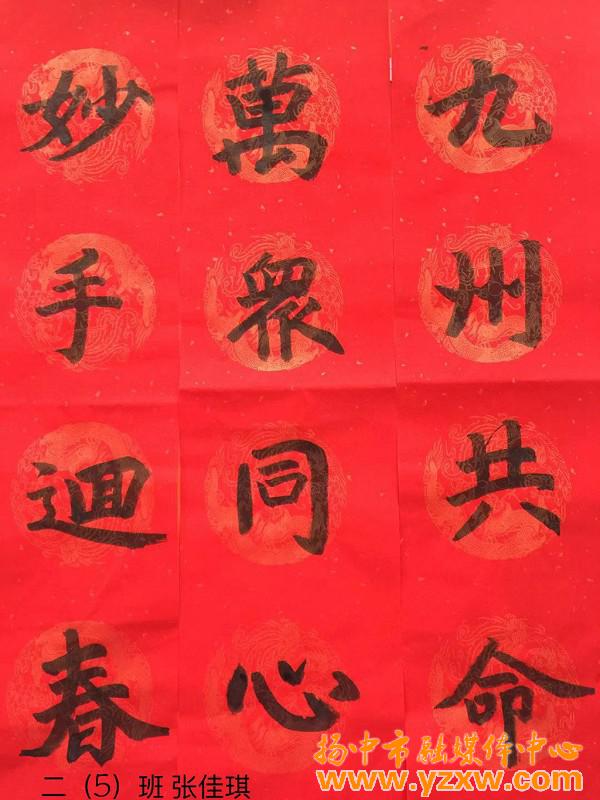 九州共命
萬衆同心
妙手迴春
二（5）班 张佳琪
扬中市融媒体中心
www.yzxw.com